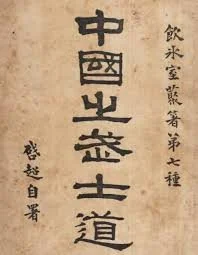 飲氷室叢箸第七種
中國之武士道
啓超自署